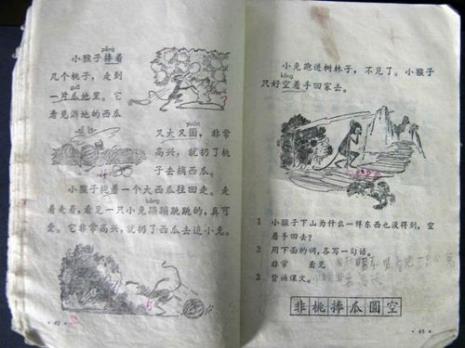 pěng
小猴子捧着
几个桃子，走到
guā
一片瓜地里。它
看见满地的西瓜
yuán
又大又圆，非常
高兴，就扔了桃
子去摘西瓜。
小猴子抱着一个大西瓜往回走。走
着走着，看见一只小兔蹦蹦跳跳的，真可
爱。它非常高兴，就扔了西瓜去追小兔。
小兔跑进树林子，不见了。小猴子
kōng
只好空着手回家去。
1 小猴子下山为什么一样东西也没得到，空
着手回去？
2 用下面的词，各写一句话。
非常 看见
3 背诵课文。
非桃捧瓜圆空